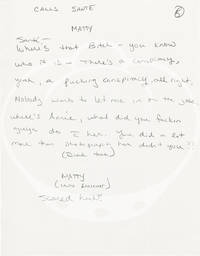 CALLS SANTÉ
6
MATTY
Santé —
Where's that Bitch — you know
who it is — There's a conspiracy,
yeah, a fucking conspiracy, all right.
Nobody wants to let me in on the joke
where's Annie, what did you fuckin
guys do to her. You did a lot
more than photography now didn't you?!
MATTY